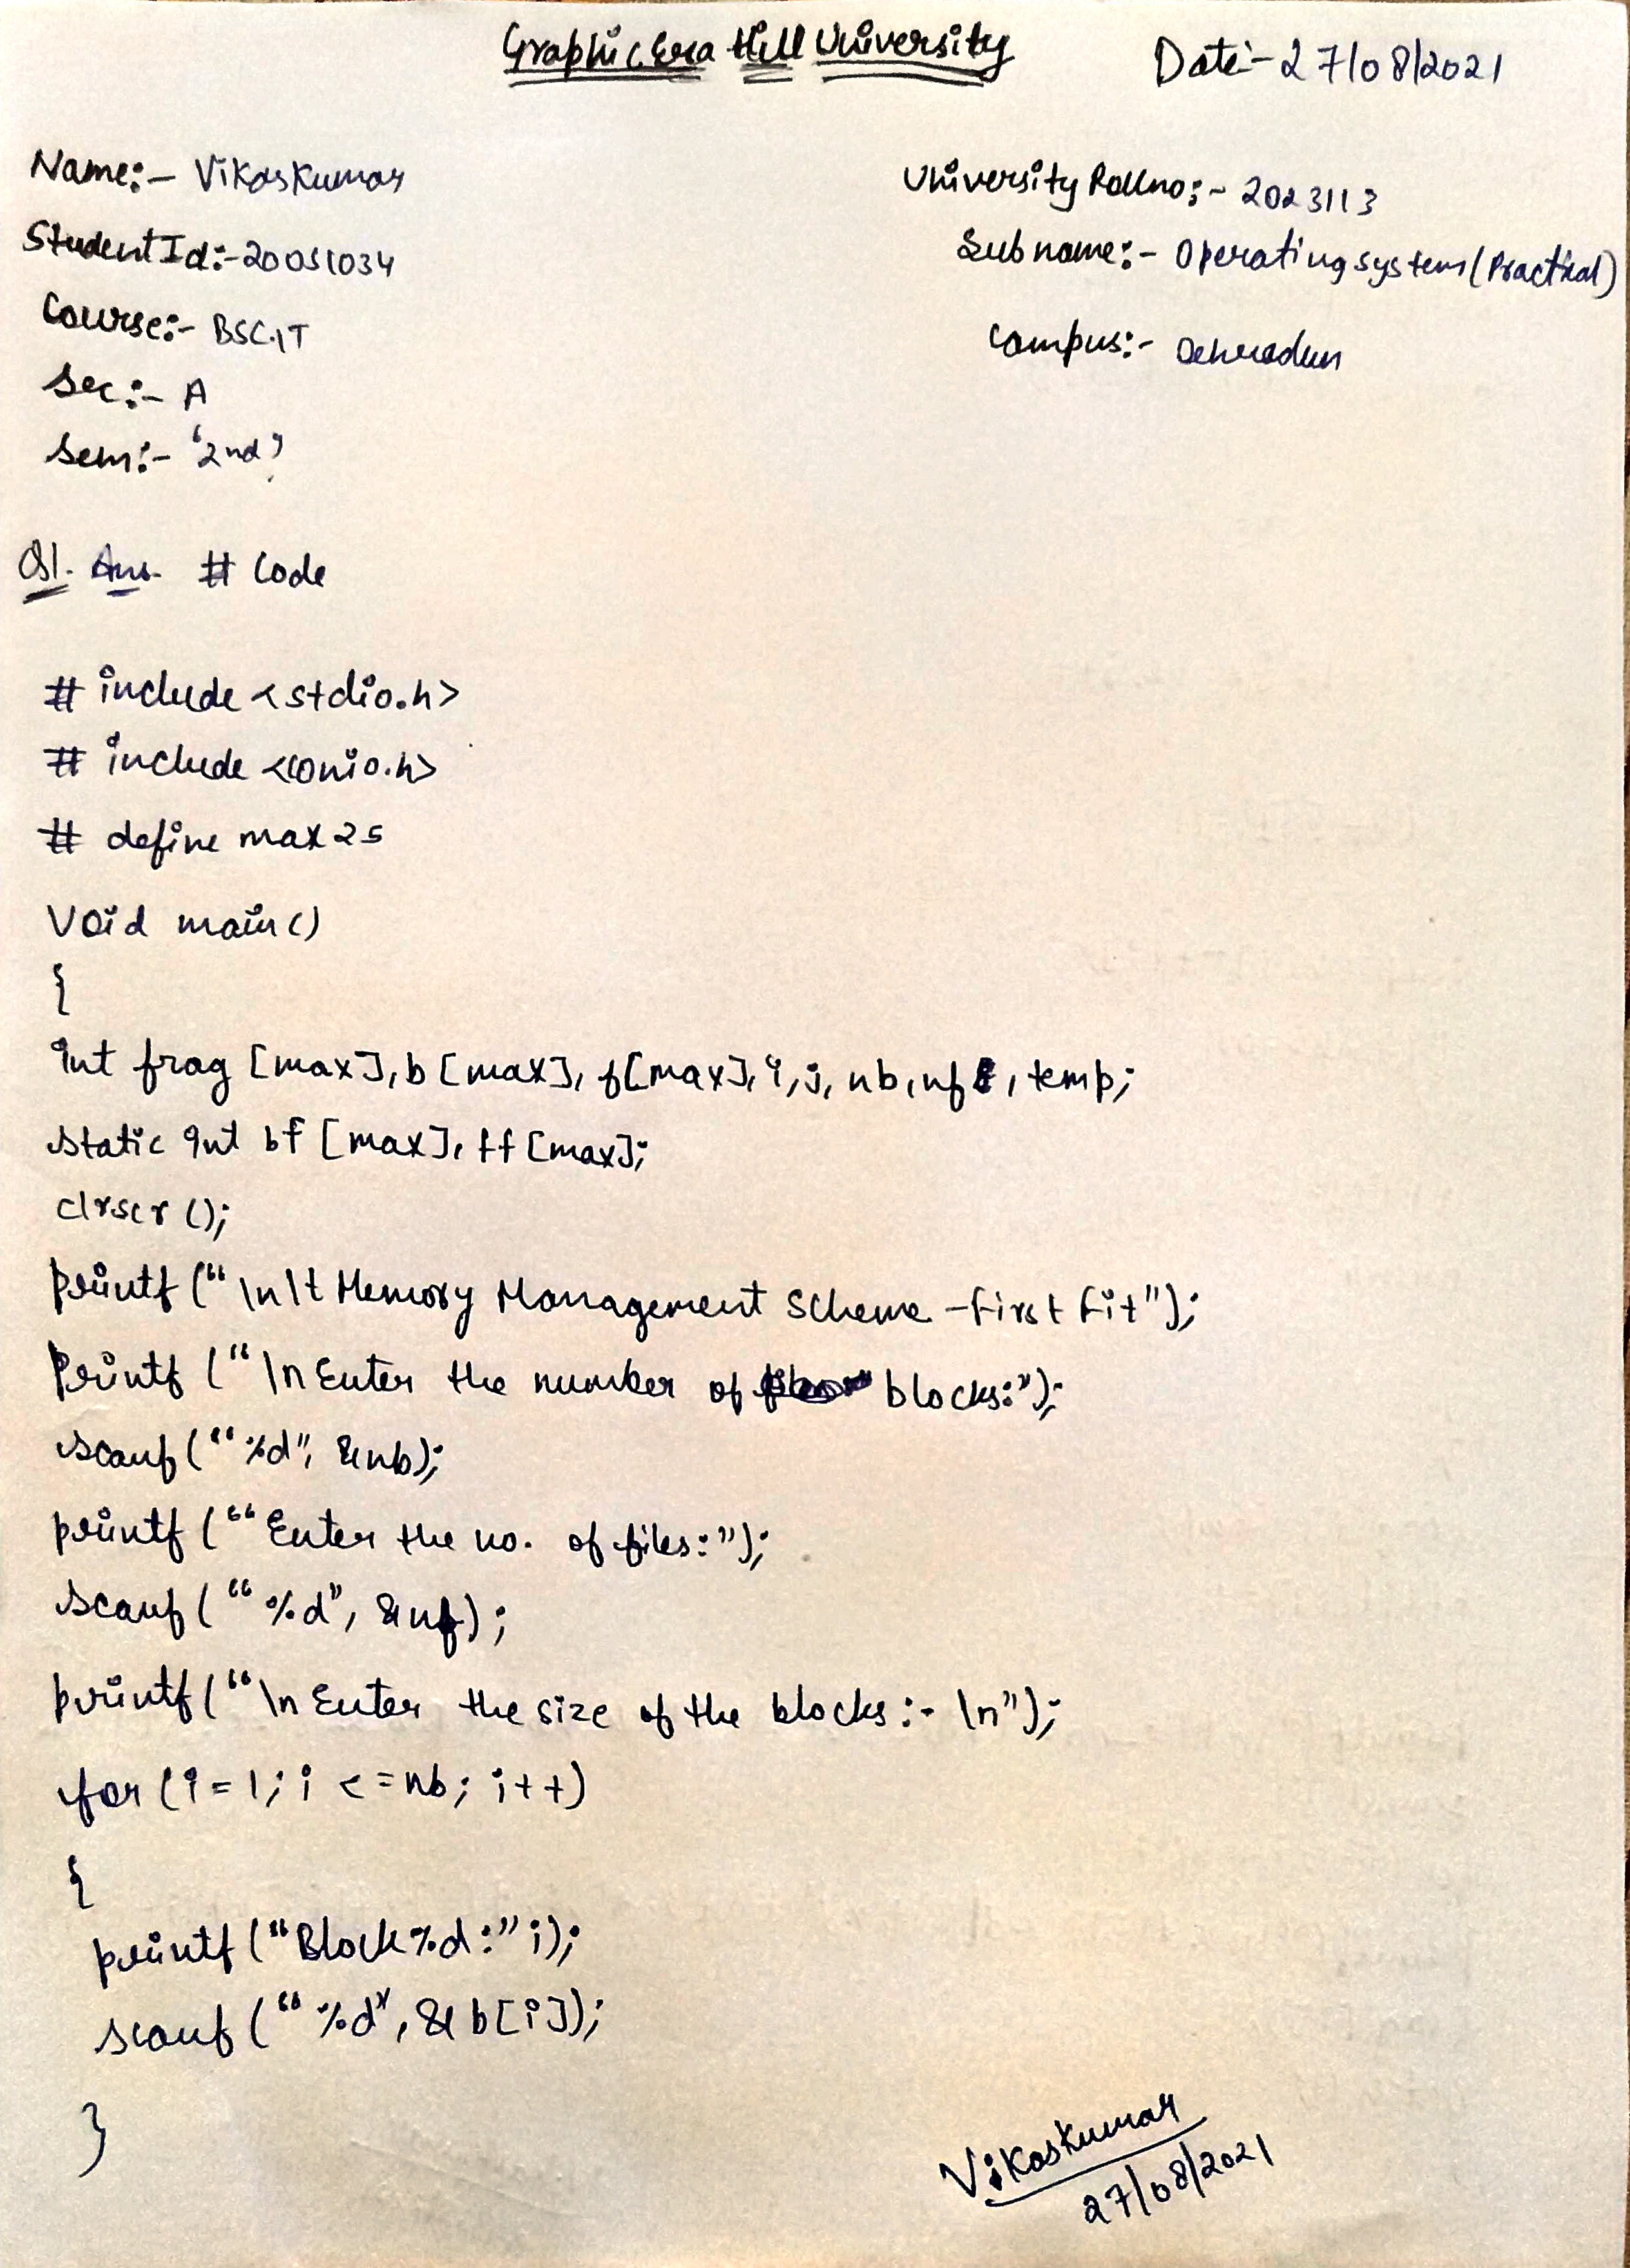 Graphic Era Hill University
Date:- 27/08/2021
Name:- Vikas Kumar
University Rollno:- 2023113
Student Id:- 20051034
Sub name:- Operating system (Practical)
Course:- BSC.IT
Campus:- Dehradun
Sec:- A
Sem:- '2nd'
Q1. Ans. # Code
# include <stdio.h>
# include <conio.h>
# define max 25
Void main()
{
int frag [max], b [max], f[max], i, j, nb, nf, temp;
static int bf [max], ff [max];
clrscr ();
printf (" \n\t Memory Management Scheme - first fit");
Printf (" \n Enter the number of blocks:");
scanf (" %d", &nb);
printf (" Enter the no. of files:");
Scanf (" %d", &nf);
printf (" \n Enter the size of the blocks:- \n");
for (i = 1; i <= nb; i++)
{
printf ("Block %d:" i);
scanf (" %d", & b[i]);
}
Vikas Kumar
27/08/2021